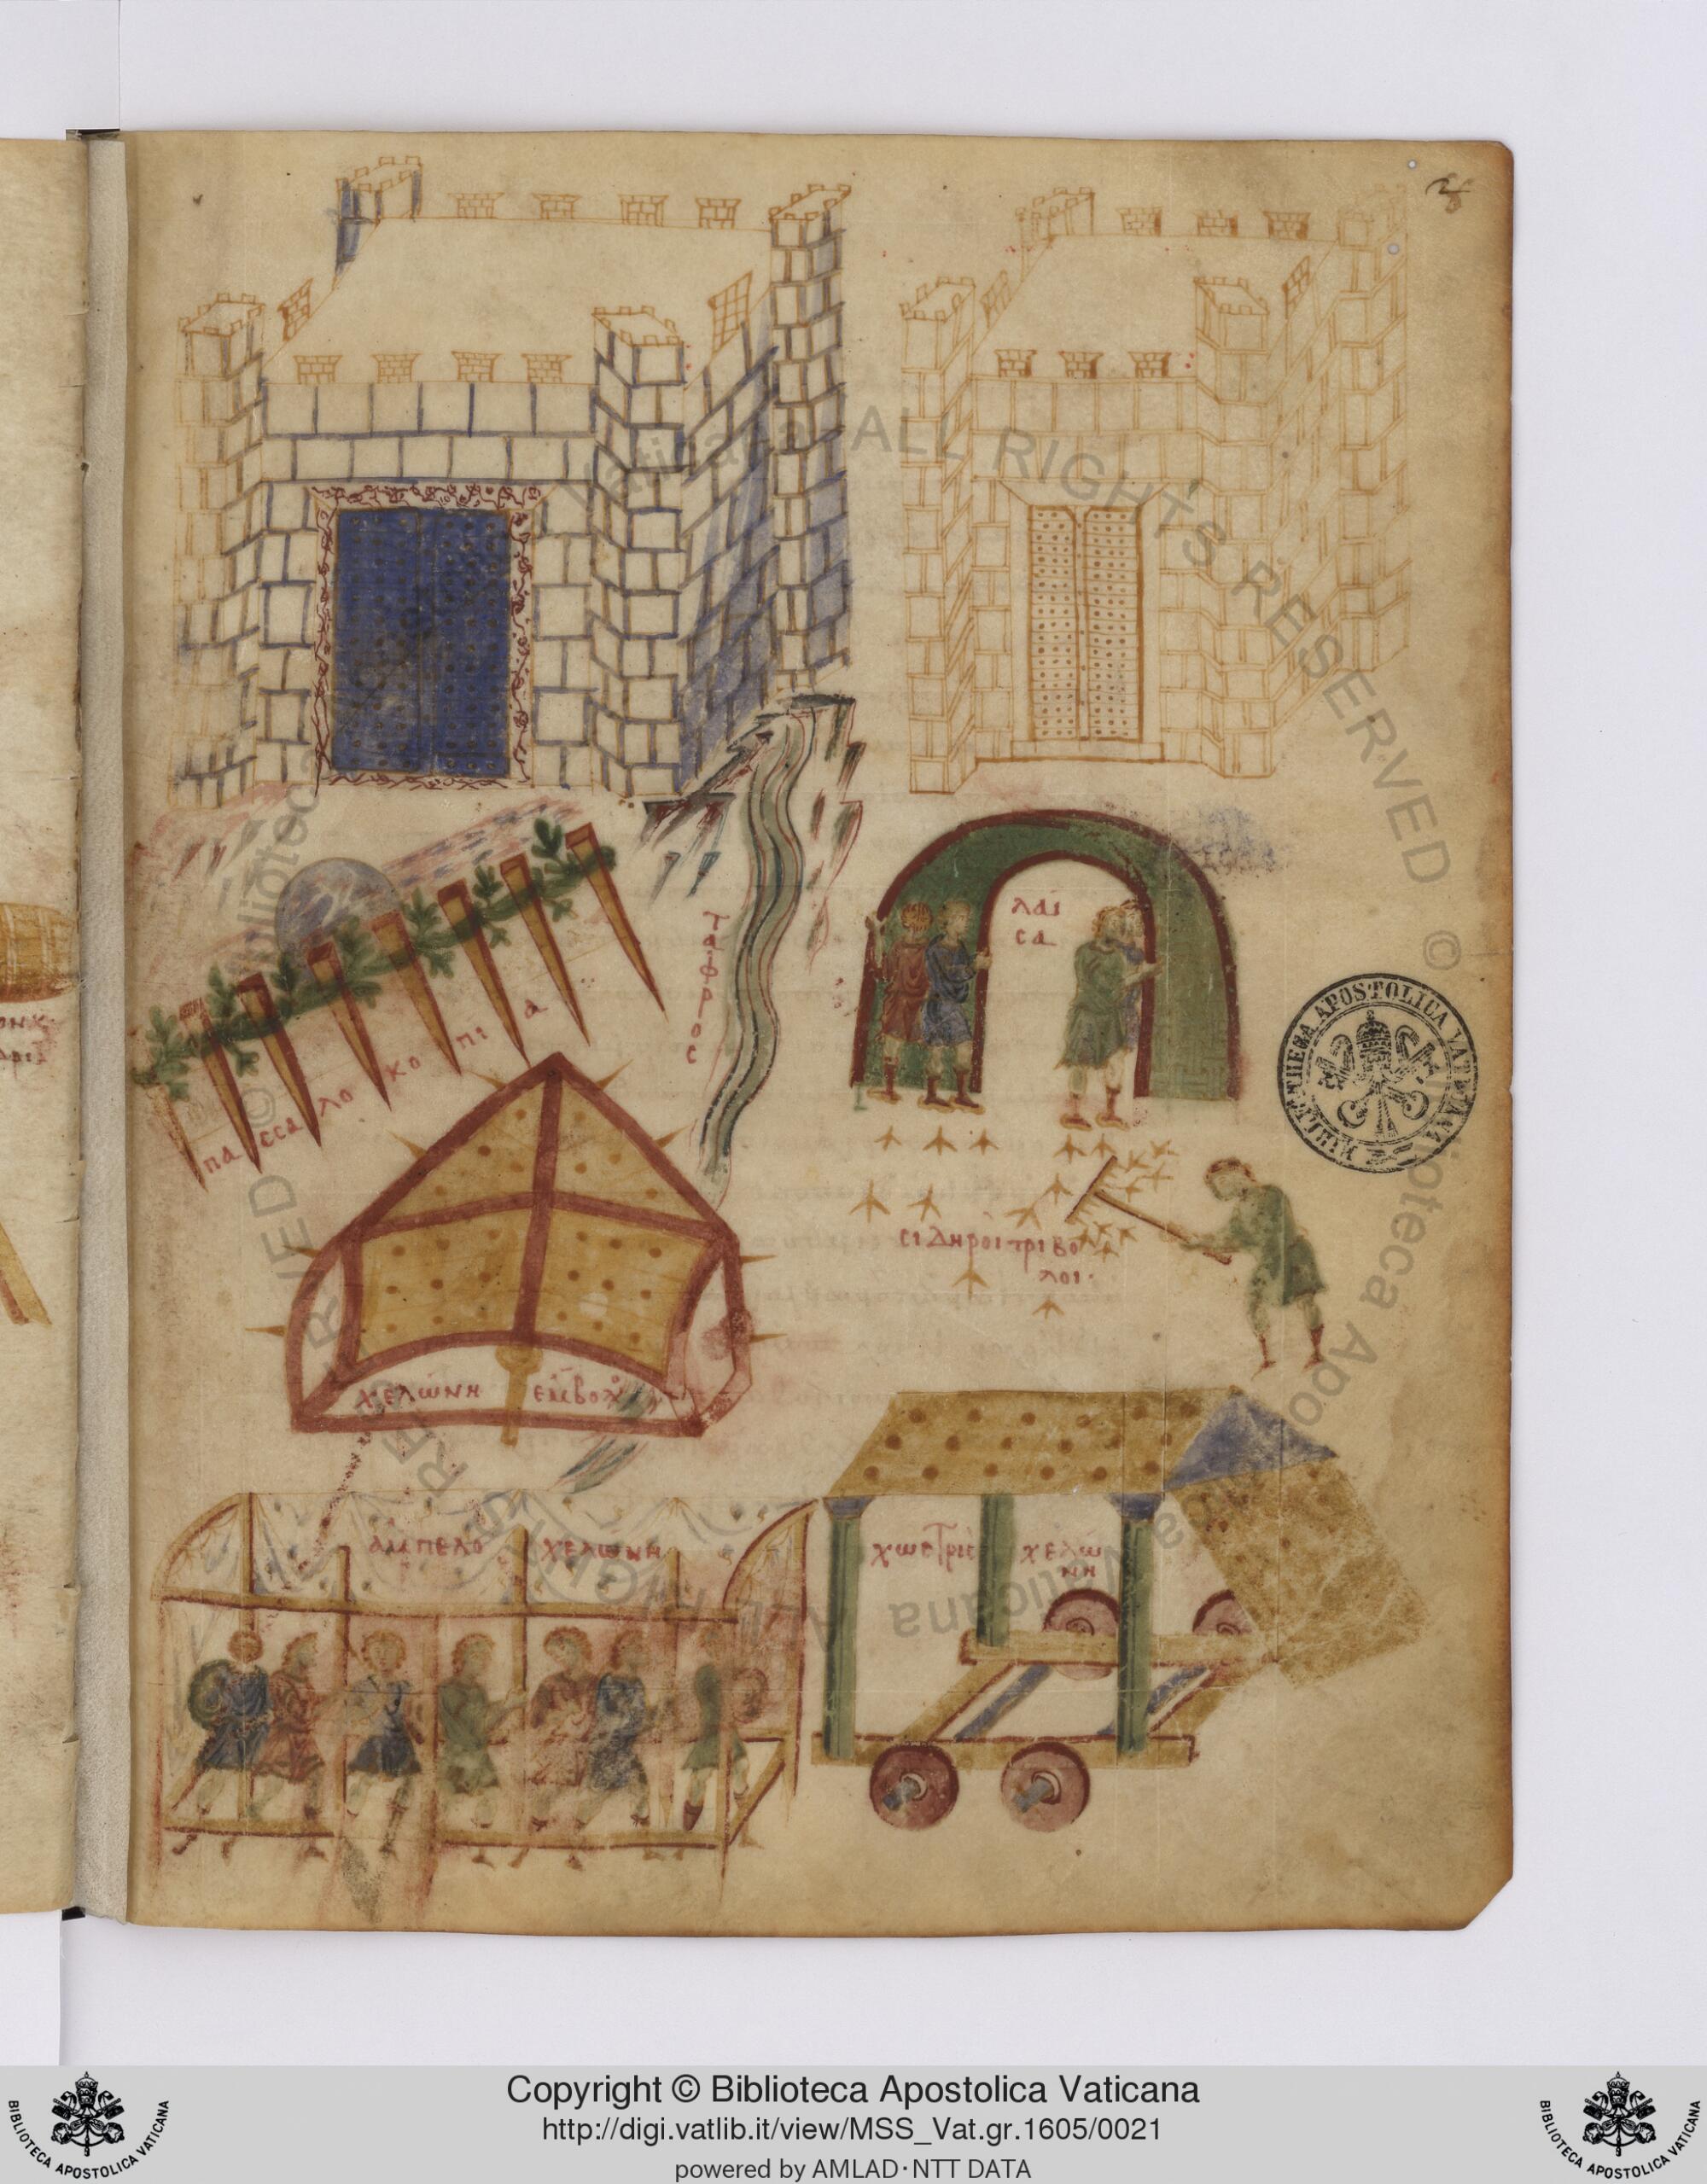 πα σσα λο κο πι α
ταφρος
λαι
σα
σιδηροι τριβο
λοι·
χελώνη εμβολ
ἀμπελο χελώνη
χωστρίς χελώ
νη
BIBLIOTHECA APOSTOLICA VATICANA
Biblioteca Apostolica Vaticana ALL RIGHTS RESERVED ©
Copyright © Biblioteca Apostolica Vaticana
http://digi.vatlib.it/view/MSS_Vat.gr.1605/0021
powered by AMLAD·NTT DATA
BIBLIOTECA APOSTOLICA VATICANA
BIBLIOTECA APOSTOLICA VATICANA